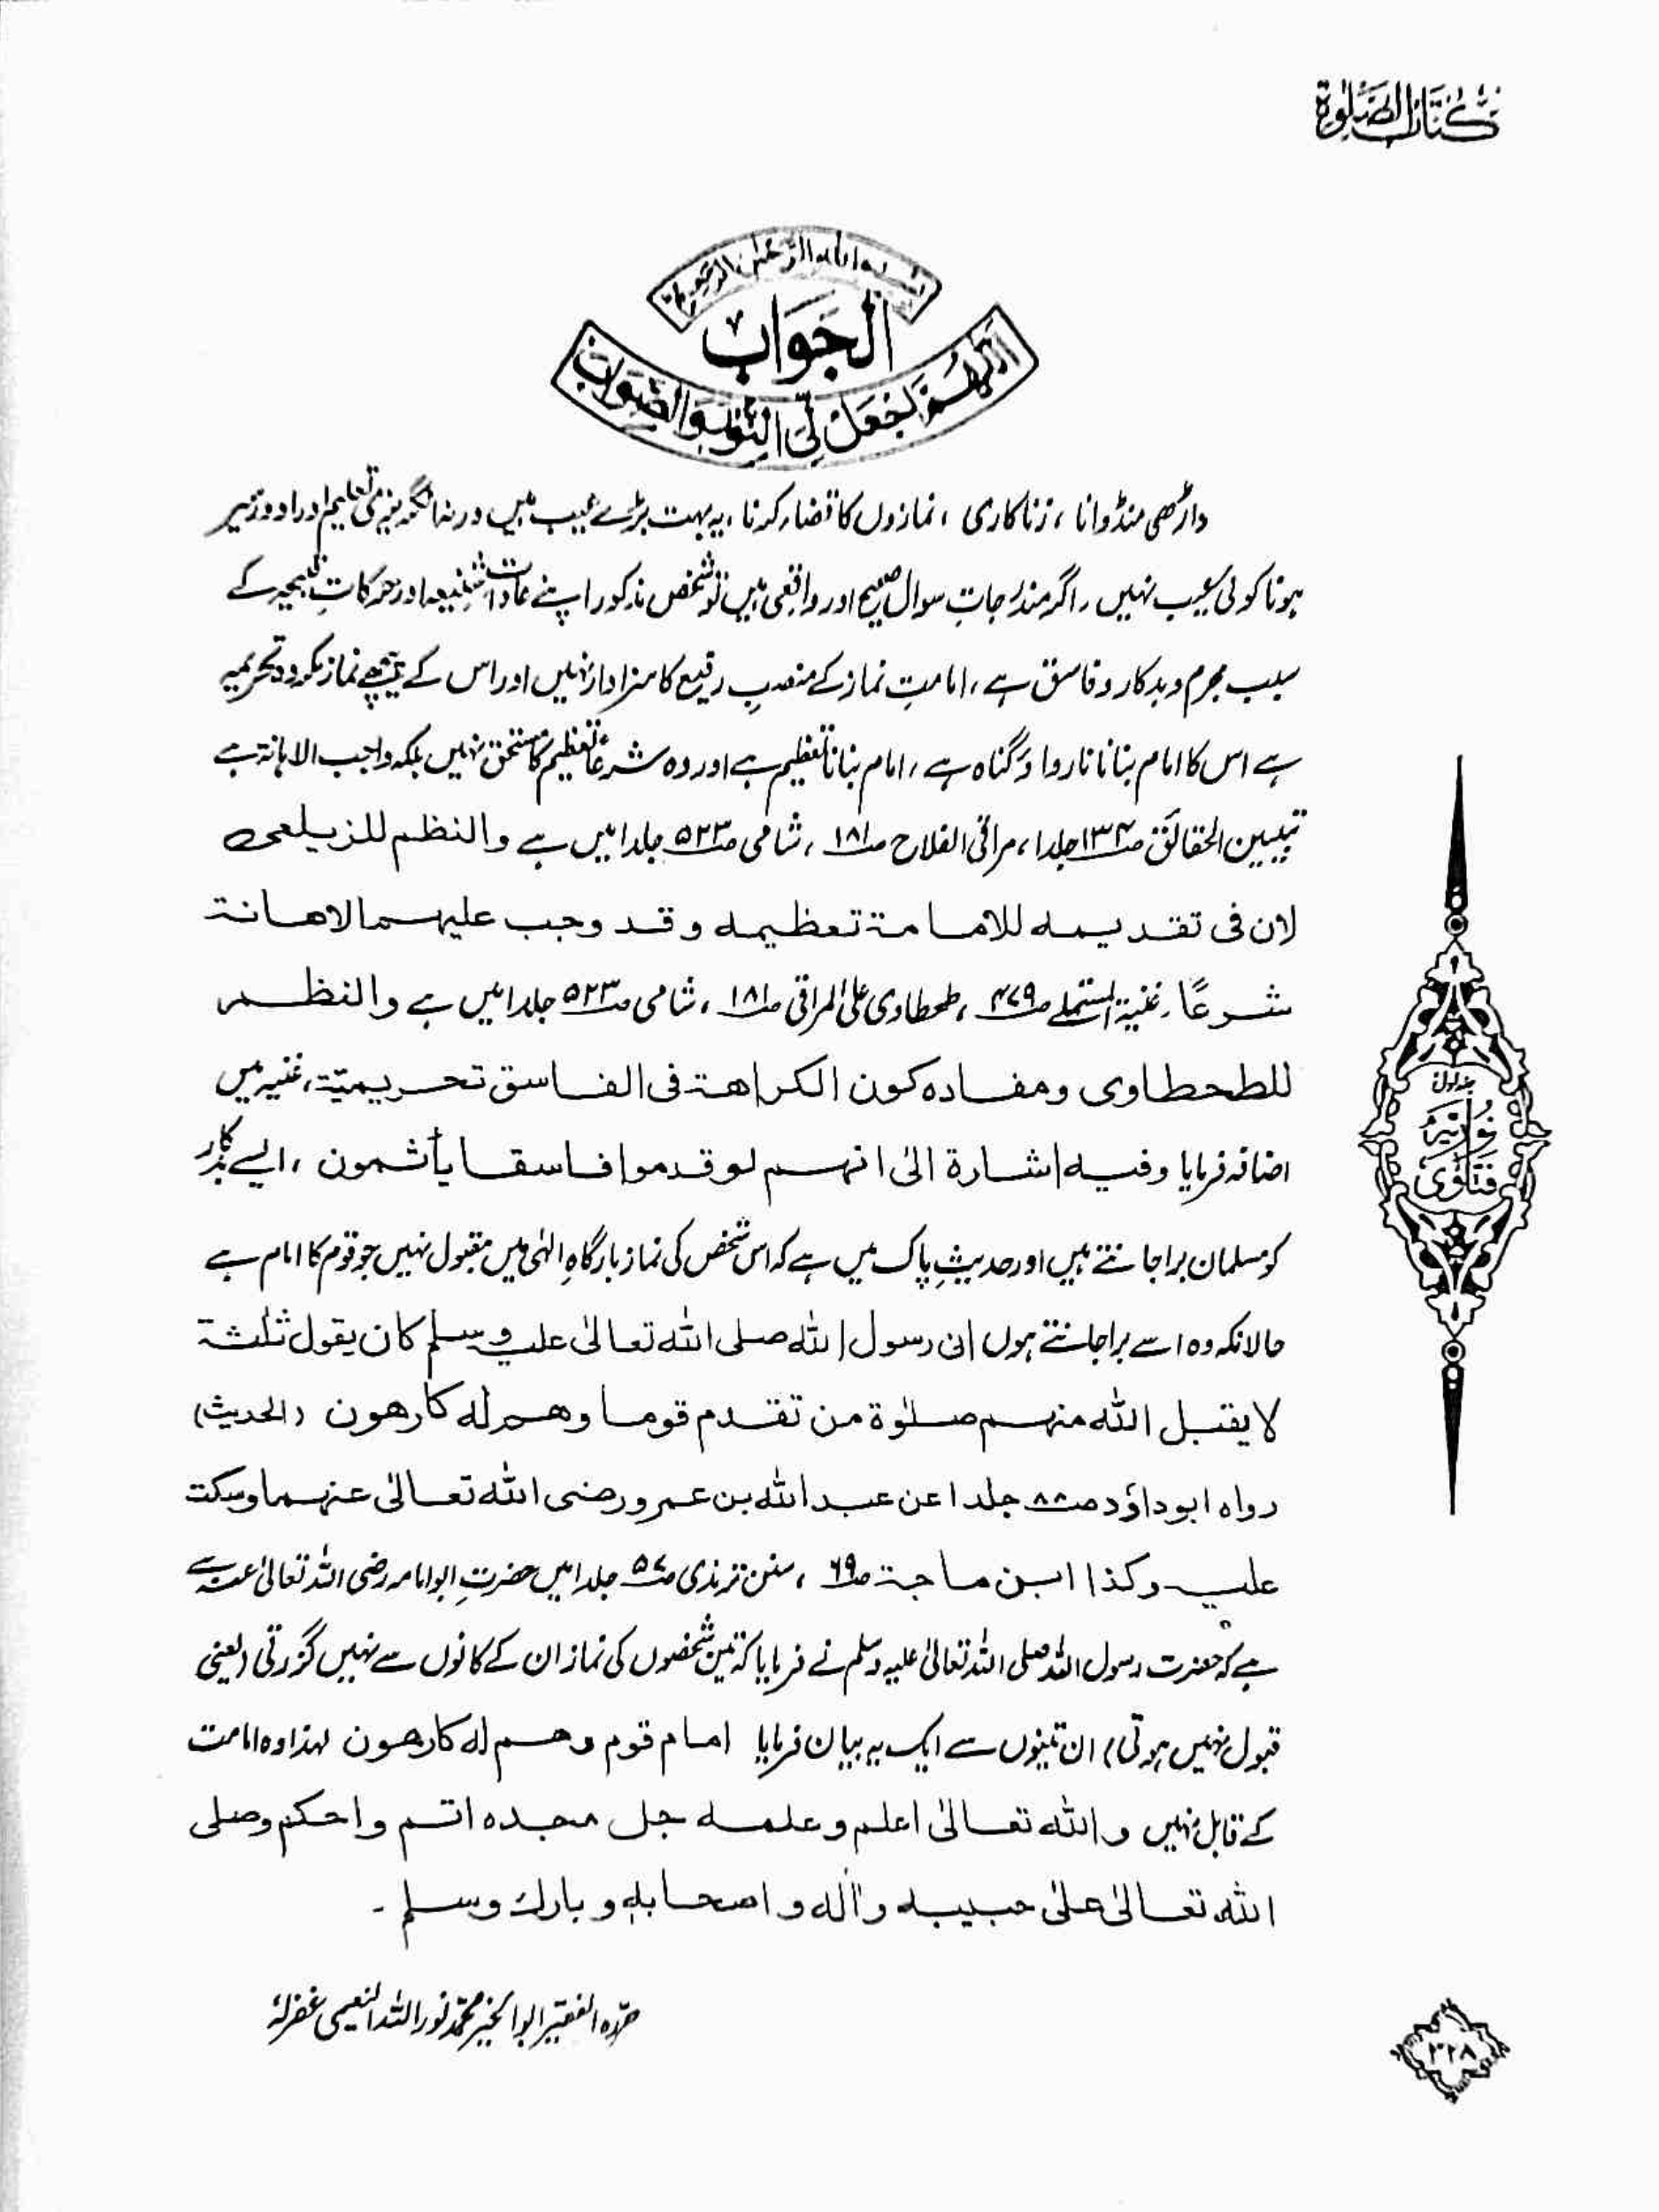 كتاب الصلوة
بسم الله الرحمن الرحيم
الجواب
اللهم اجعل لي النور والصواب
داڑھی منڈوانا ، زنا کاری ، نمازوں کا قضا کرنا ، یہ بہت بڑے عیب ہیں ورنہ انگریزی تعلیم اور
ہونا کوئی عیب نہیں ، اگر مندرجات سوال صحیح اور واقعی ہیں تو شخص مذکور اپنے عاداتِ شنیعہ اور حرکاتِ قبیحہ کے
سبب مجرم و بدکار و فاسق ہے ، امامتِ نماز کے منصبِ رفیع کا سزاوار نہیں اور اس کے پیچھے نماز مکروہ تحریمیہ
ہے اس کا امام بنانا ناروا و گناہ ہے ، امام بنانا تعظیم ہے اور وہ شرعاً تعظیم کا مستحق نہیں بلکہ واجب الاہانۃ ہے
تبیین الحقائق ص۱۳۴ جلد۱ ، مراقی الفلاح ص۱۸۱ ، شامی ص۵۲۳ جلد۱ میں ہے والنظم للزيلعى
لان فى تقديمه للامامة تعظيمه وقد وجب عليهم الاهانة
شرعًا ۔ غنیۃ المستملے ص۴۷۹ ، طحطاوی علی المراقی ص۱۸۱ ، شامی ص۵۲۳ جلد۱ میں ہے والنظم
للطحطاوى ومفاده كون الكراهة فى الفاسق تحريميّة ، غنیہ میں
اضافہ فرمایا وفيه اشارة الىٰ انهم لو قدموا فاسقا يأثمون ، ایسے بدکار
کو مسلمان برا جانتے ہیں اور حدیثِ پاک میں ہے کہ اس شخص کی نماز بارگاہِ الٰہی میں مقبول نہیں جو قوم کا امام ہے
حالانکہ وہ اسے برا جانتے ہوں ان رسول الله صلى الله تعالىٰ عليه وسلم كان يقول ثلٰثة
لا يقبل الله منهم صلوٰة من تقدم قوما وهم له كارهون (الحديث)
رواه ابوداؤد ص۸۸ جلد۱ عن عبد الله بن عمرو رضى الله تعالىٰ عنهما وسكت
عليه وكذا ابن ماجة ص۶۹ ، سنن ترمذی ص۵۷ جلد۱ میں حضرتِ ابوامامہ رضی اللہ تعالیٰ عنہ سے
ہے کہ حضرت رسول اللہ صلی اللہ تعالیٰ علیہ وسلم نے فرمایا کہ تین شخصوں کی نماز ان کے کانوں سے نہیں گزرتی (یعنی
قبول نہیں ہوتی) ان تینوں سے ایک یہ بیان فرمایا امام قوم وهم له كارهون لہذا وہ امامت
کے قابل نہیں والله تعالىٰ اعلم وعلمه جل مجده اتم واحكم وصلى
الله تعالىٰ علىٰ حبيبه وآله واصحابه وبارك وسلم ۔
حرّرہ الفقیر ابوالخیر محمد نور اللہ النعیمی غفرلہٗ
جلد اول
نوریہ
فتاویٰ
۳۲۸